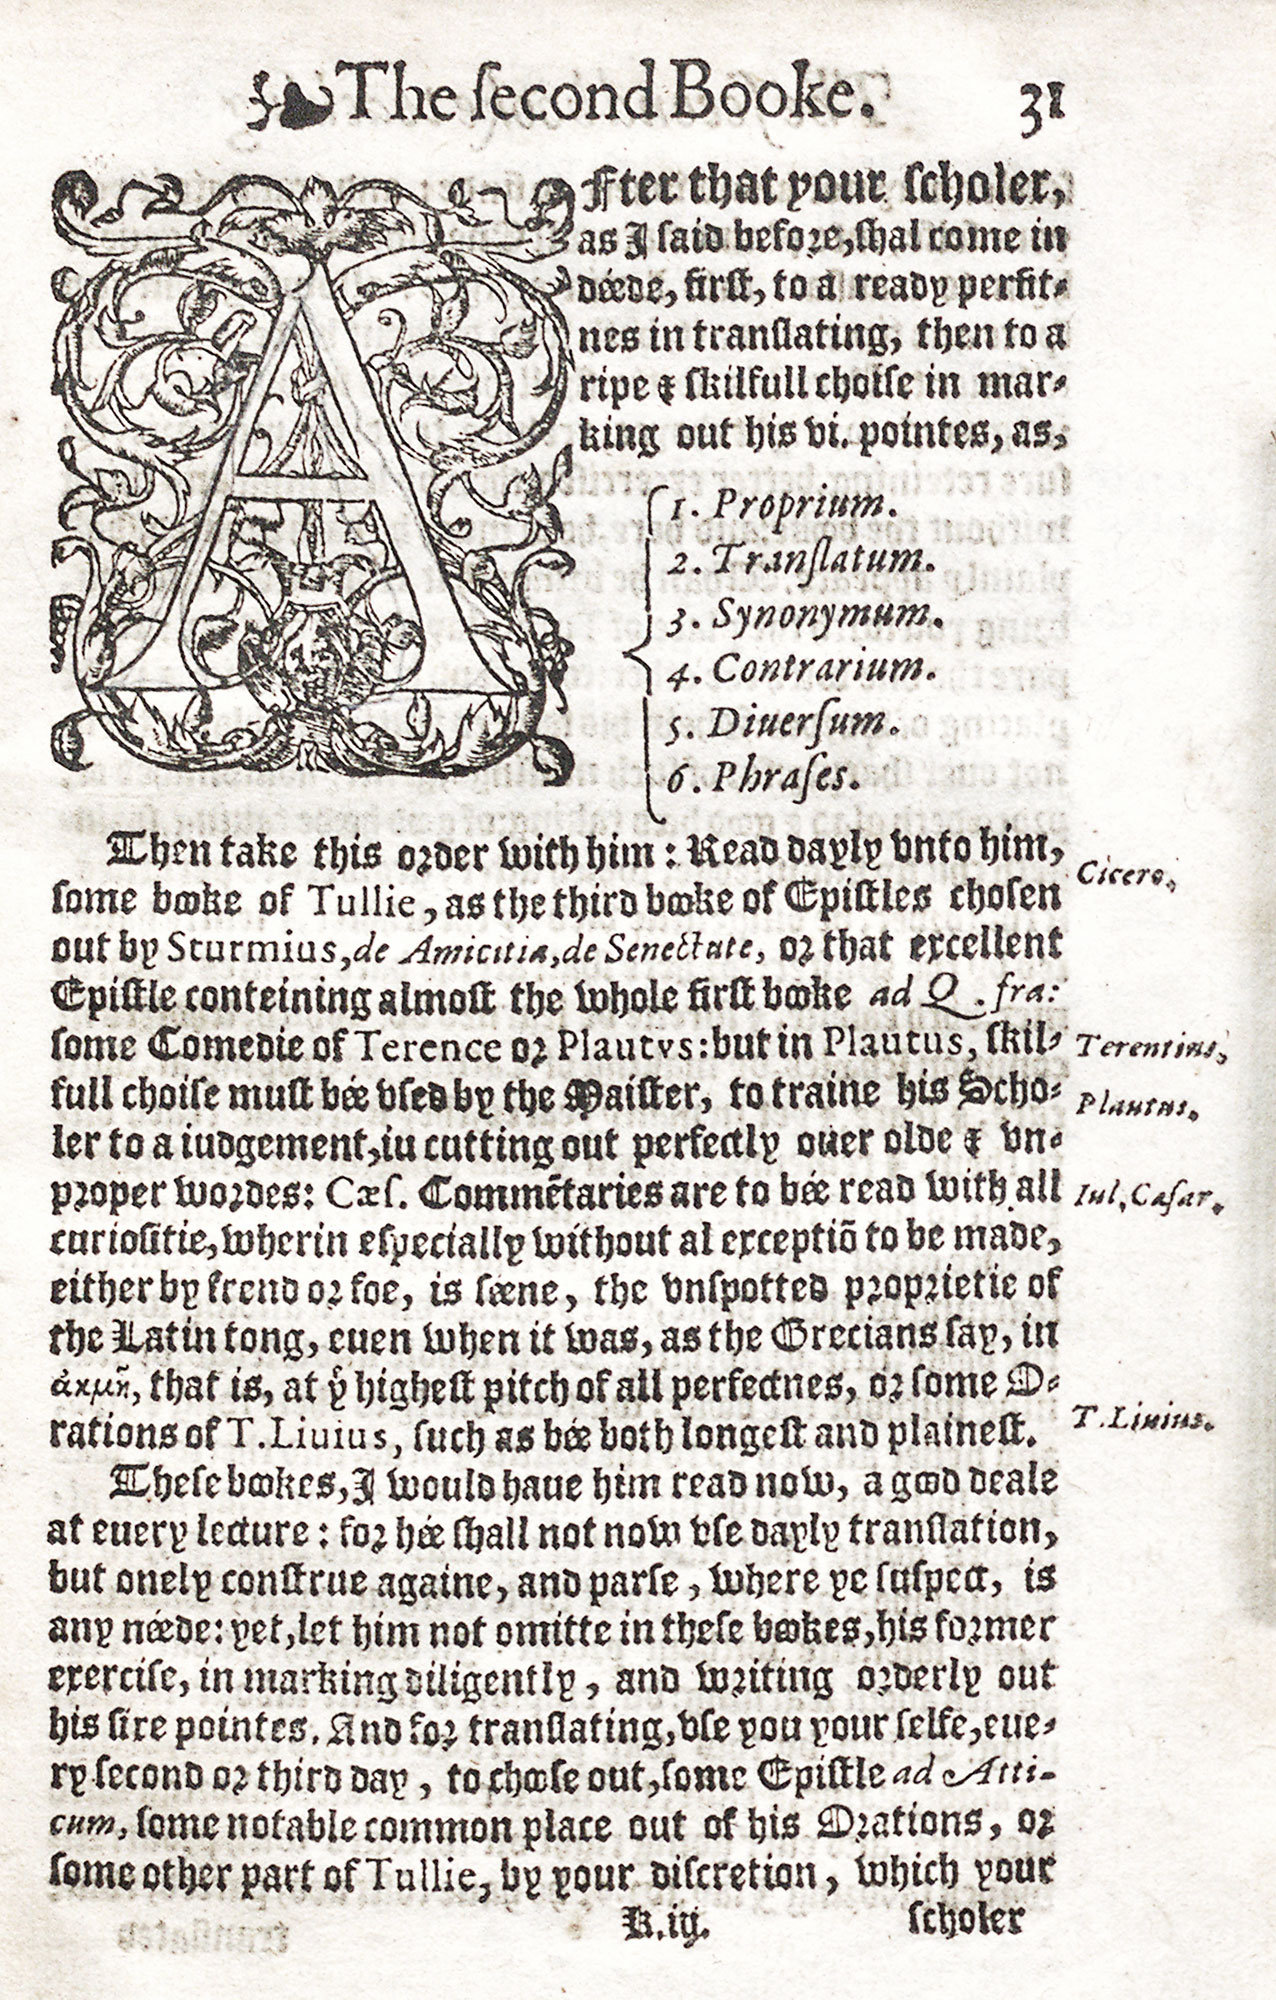 The ſecond Booke. 31
After that your ſcholer,
as I ſaid before, ſhal come in
déede, firſt, to a ready perfit-
nes in tranſlating, then to a
ripe & ſkilfull choiſe in mar-
king out his vi. pointes, as,
1. Proprium.
2. Tranſlatum.
3. Synonymum.
4. Contrarium.
5. Diuerſum.
6. Phraſes.
Then take this order with him: Read dayly vnto him,
Cicero,
ſome booke of Tullie, as the third booke of Epiſtles choſen
out by Sturmius, de Amicitia, de Senectute, or that excellent
Epiſtle conteining almoſt the whole firſt booke ad Q. fra:
ſome Comedie of Terence or Plautvs: but in Plautus, ſkil-
Terentius,
full choiſe muſt bée vſed by the Maiſter, to traine his Scho-
Plautus.
ler to a iudgement, iu cutting out perfectly ouer olde & vn-
proper wordes: Cæſ. Commẽtaries are to bée read with all
Iul, Cæſar.
curioſitie, wherin eſpecially without al exceptiõ to be made,
either by frend or foe, is ſéene, the vnſpotted proprietie of
the Latin tong, euen when it was, as the Grecians ſay, in
ἀκμῆ, that is, at yͤ higheſt pitch of all perfectnes, or ſome O-
rations of T. Liuius, ſuch as bée both longeſt and plaineſt.
T. Liuius.
Theſe bookes, I would haue him read now, a good deale
at euery lecture: for hée ſhall not now vſe dayly tranſlation,
but onely conſtrue againe, and parſe, where ye ſuſpect, is
any néede: yet, let him not omitte in theſe bookes, his former
exerciſe, in marking diligently, and writing orderly out
his ſixe pointes. And for tranſlating, vſe you your ſelfe, eue-
ry ſecond or third day, to chooſe out, ſome Epiſtle ad Atti-
cum, ſome notable common place out of his Orations, or
ſome other part of Tullie, by your diſcretion, which your
K.iij. ſcholer